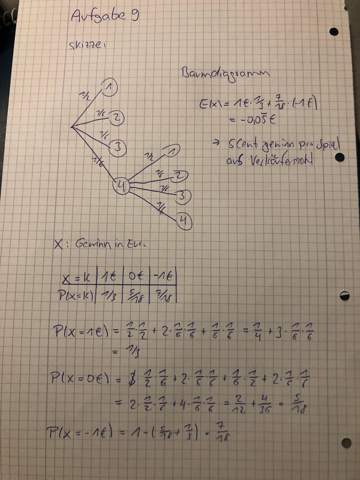 Aufgabe 9
Skizze:
Baumdiagramm
1/2 1
1/6 2
1/6 3
1/6 4
1/2 1
1/6 2
1/6 3
1/6 4
E(X) = 1€ · 1/3 + 7/18 · (-1€)
= -0,05€
→ 5 Cent gewinn pro Spiel
aus Verkäufersicht
X: Gewinn in Eur.
X = K 1€ 0€ -1€
P(X=K) 1/3 5/18 7/18
P(X = 1€) = 1/2 · 1/2 + 2 · 1/6 · 1/6 + 1/6 · 1/6 = 1/4 + 3 · 1/6 · 1/6
= 1/3
P(X = 0€) = 1/2 · 1/6 + 2 · 1/6 · 1/6 + 1/6 · 1/2 + 2 · 1/6 · 1/6
= 2 · 1/2 · 1/6 + 4 · 1/6 · 1/6 = 2/12 + 4/36 = 5/18
P(X = -1€) = 1 - (5/18 + 1/3) = 7/18